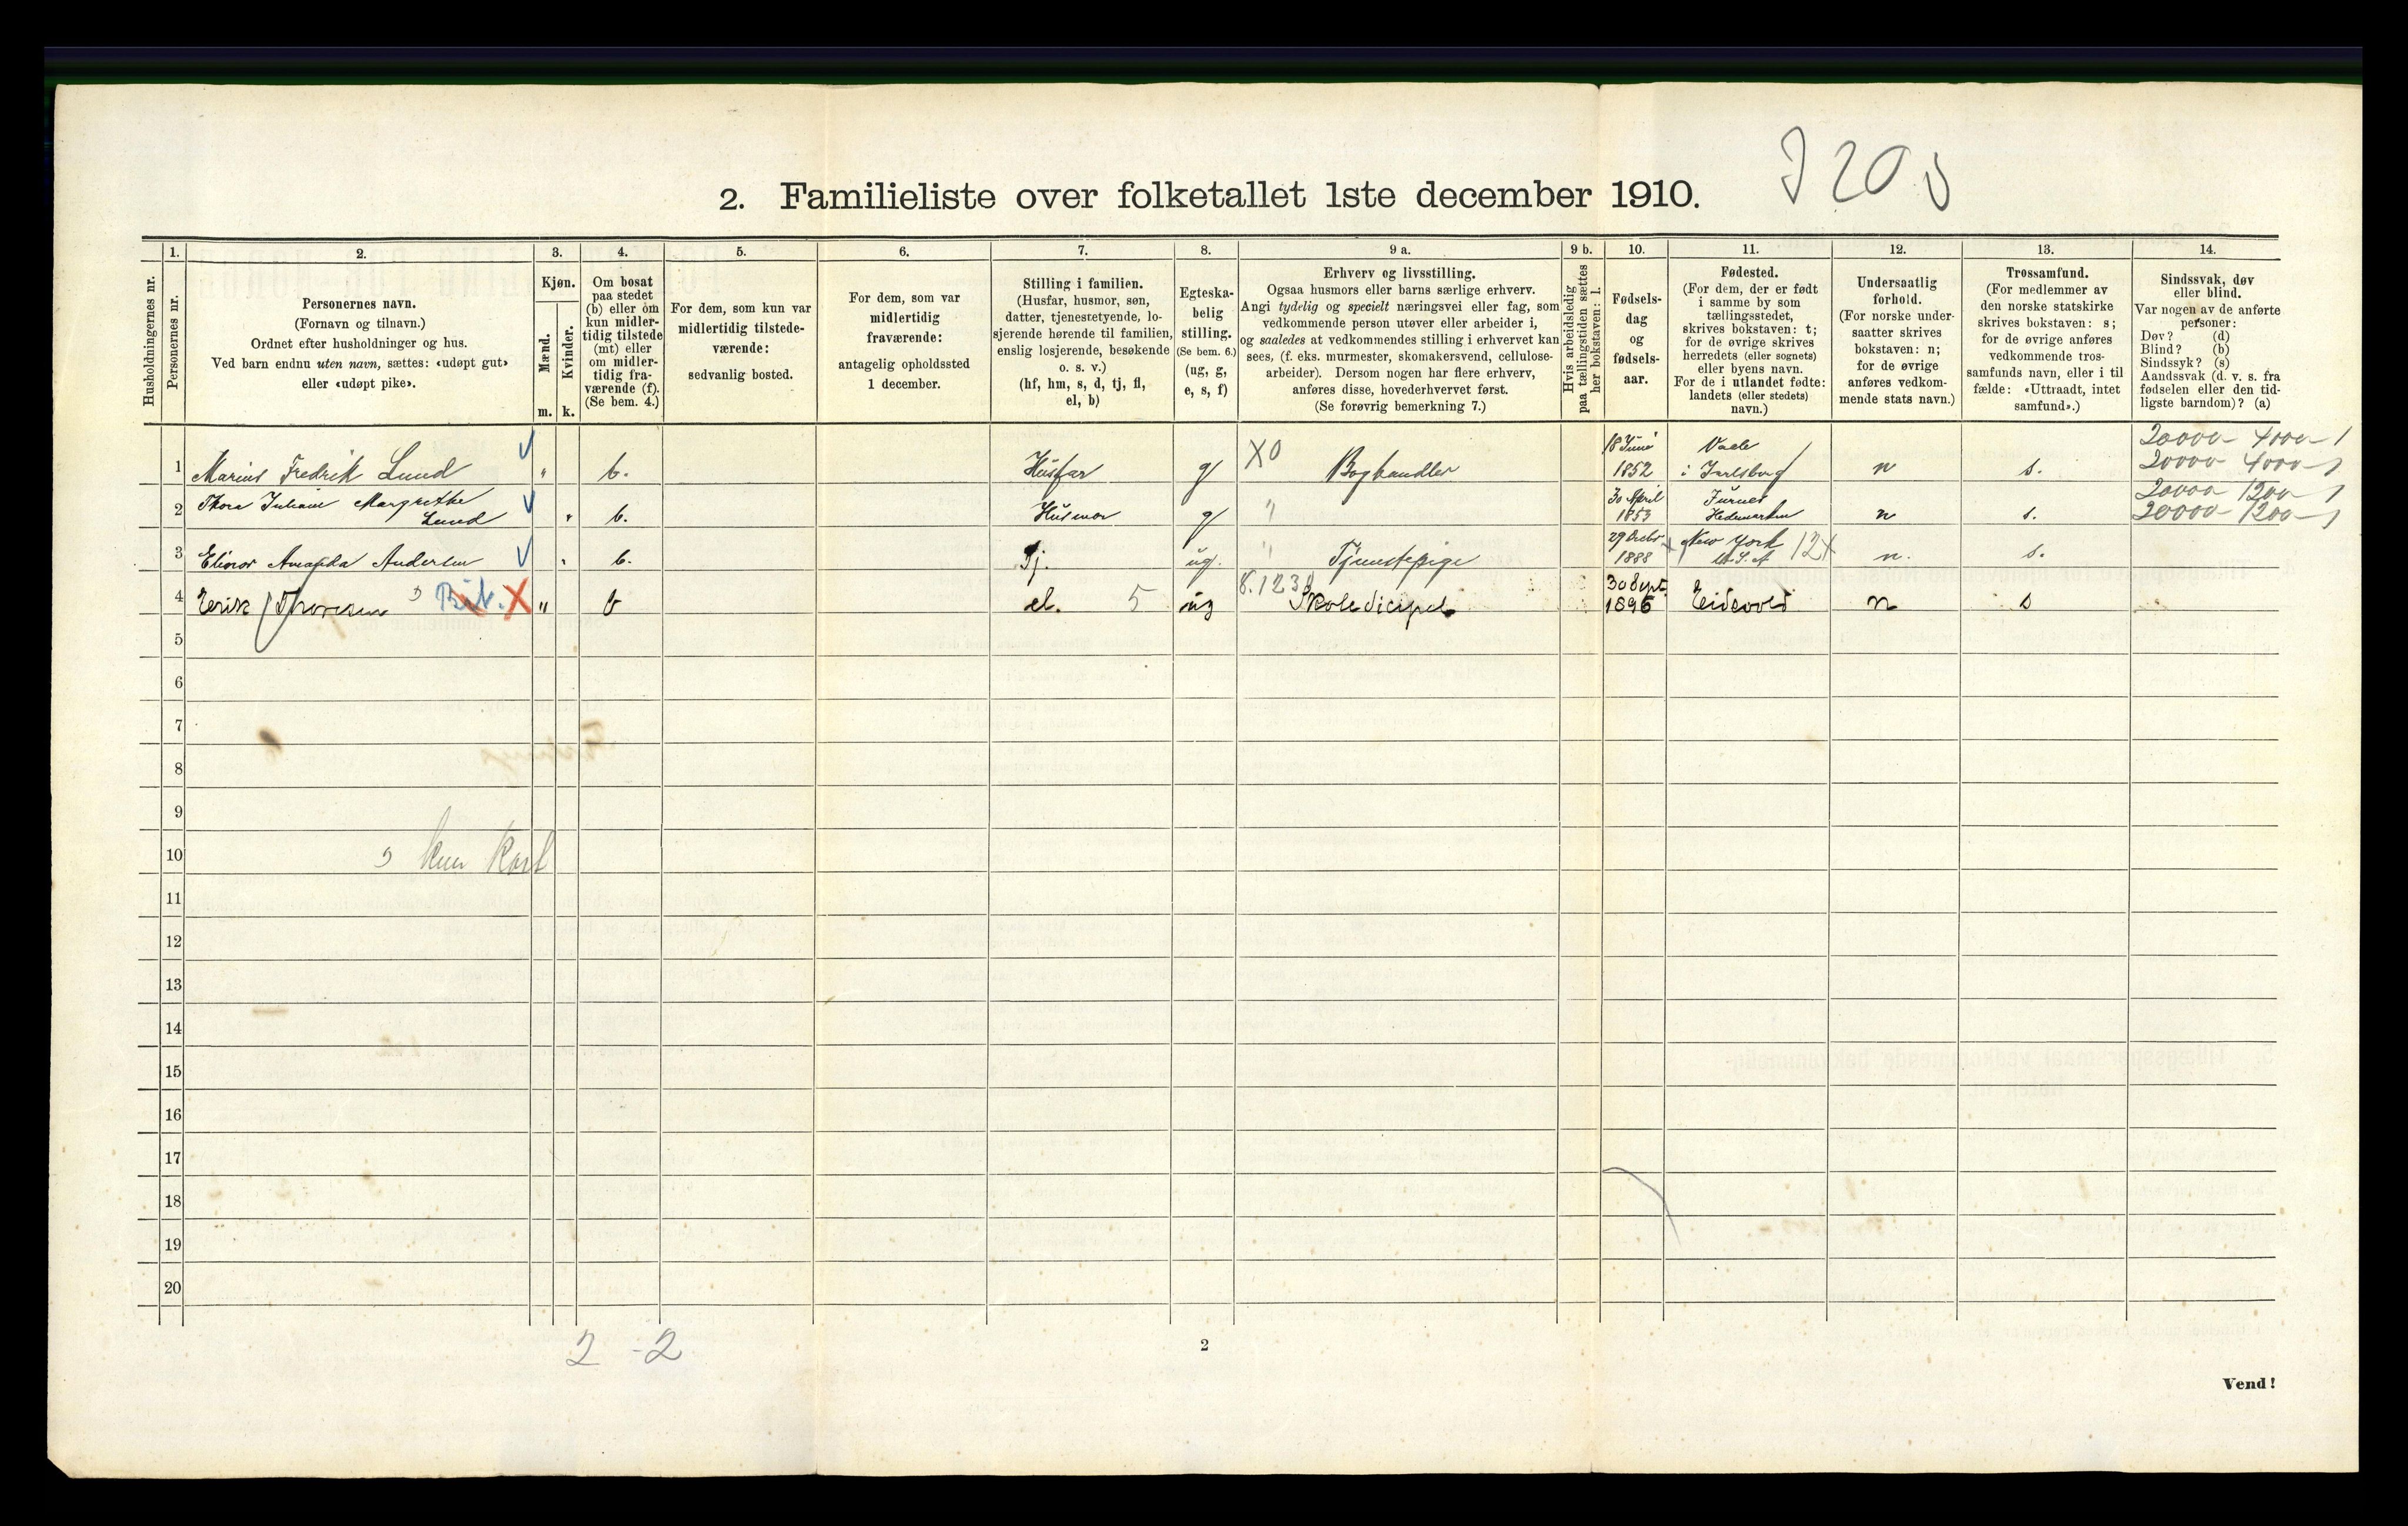 2. Familieliste over folketallet 1ste december 1910.
Husholdningernes nr.
1.
Personernes nr.
2.
Personernes navn.
(Fornavn og tilnavn.)
Ordnet efter husholdninger og hus.
Ved barn endnu uten navn, sættes: «udøpt gut»
eller «udøpt pike».
3.
Kjøn.
Mænd.
Kvinder.
m. k.
4.
Om bosat
paa stedet
(b) eller om
kun midler-
tidig tilstede
(mt) eller
om midler-
tidig fra-
værende (f).
(Se bem. 4.)
5.
For dem, som kun var
midlertidig tilstede-
værende:
sedvanlig bosted.
6.
For dem, som var
midlertidig
fraværende:
antagelig opholdssted
1 december.
7.
Stilling i familien.
(Husfar, husmor, søn,
datter, tjenestetyende, lo-
sjerende hørende til familien,
enslig losjerende, besøkende
o. s. v.)
(hf, hm, s, d, tj, fl,
el, b)
8.
Egteska-
belig
stilling.
(Se bem. 6.)
(ug, g,
e, s, f)
9 a.
Erhverv og livsstilling.
Ogsaa husmors eller barns særlige erhverv.
Angi tydelig og specielt næringsvei eller fag, som
vedkommende person utøver eller arbeider i,
og saaledes at vedkommendes stilling i erhvervet kan
sees, (f. eks. murmester, skomakersvend, cellulose-
arbeider). Dersom nogen har flere erhverv,
anføres disse, hovederhvervet først.
(Se forøvrig bemerkning 7.)
9 b.
Hvis arbeidsledig
paa tællingstiden sættes
her bokstaven: l.
10.
Fødsels-
dag
og
fødsels-
aar.
11.
Fødested.
(For dem, der er født
i samme by som
tællingsstedet,
skrives bokstaven: t;
for de øvrige skrives
herredets (eller sognets)
eller byens navn.
For de i utlandet fødte:
landets (eller stedets)
navn.)
12.
Undersaatlig
forhold.
(For norske under-
saatter skrives
bokstaven: n;
for de øvrige
anføres vedkom-
mende stats navn.)
13.
Trossamfund.
(For medlemmer av
den norske statskirke
skrives bokstaven: s;
for de øvrige anføres
vedkommende tros-
samfunds navn, eller i til
fælde: «Uttraadt, intet
samfund».)
14.
Sindssvak, døv
eller blind.
Var nogen av de anførte
personer:
Døv? (d)
Blind? (b)
Sindssyk? (s)
Aandssvak (d. v. s. fra
fødselen eller den tid-
ligste barndom)? (a)
20000 4000 1
1 Marius Fredrik Lund " b. Husfar g X0 Boghandler 18 Juni 1852 Vaale i Jarlsberg n s. 20000 4000
20000 1200
2 Thora Juliane Margrethe Lund " b. Husmor g " 30 April 1853 Furnes Hedemarken n s. 20000 1200
3 Elinor Andersen " b. Tj. ug. " Tjenestepige 29 Octbr 1888 New York U.S.A 12X n. s.
4 Erik Thoresen X " b el. 5 ug Skoledicipel 30 Sept. 1896 Eidsvold n s
5
6
7
8
9
10 kun kort
11
12
13
14
15
16
17
18
19
20
2 - 2
2
Vend!